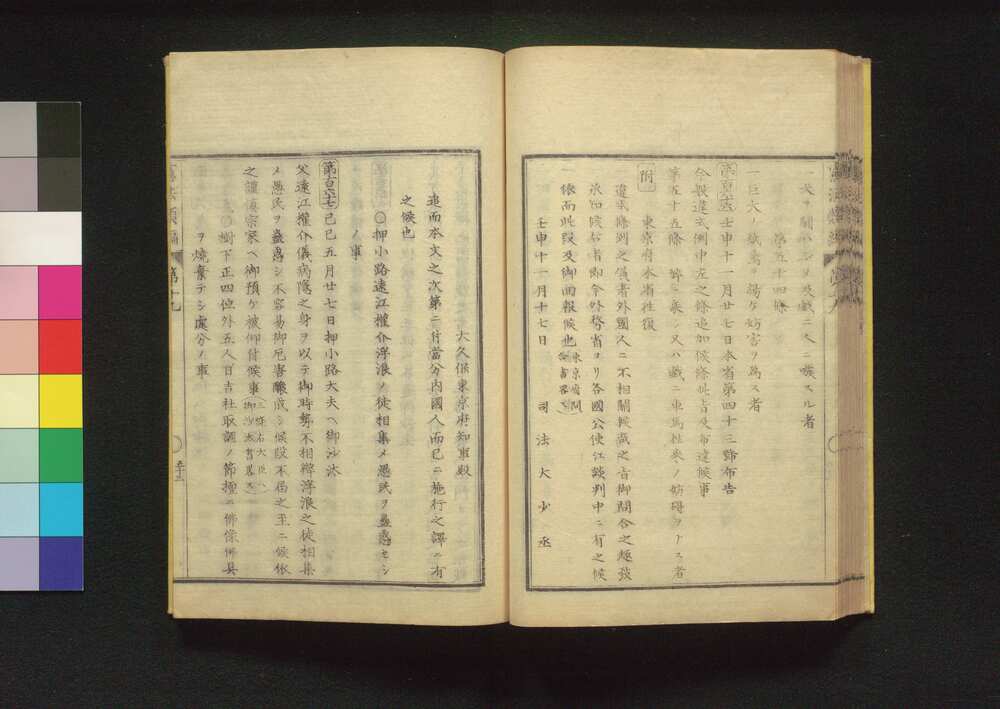 一犬ヲ闘ハシメ及戯ニ人ニ嗾スル者
第五十四條
一巨大ノ紙鳶ヲ揚ケ妨害ヲ為ス者
壬申十一月廿七日本省第四十三號布告
今般違式例中左之條追加候條此旨及布達候事
第五十五條 醉ニ乗シ又ハ戯ニ車馬往来ノ妨碍ヲナス者
附 東京府本省往復
違式條例之儀者外國人ニ不相關
旨御問合之趣致
承知候右者即今外務省ヨリ各國公使江談判中ニ有之候
依而此段及御回報候也
壬申十一月十七日 司法大少丞
大久保東京府知事殿
追而本文之次第ニ付當分内國人而已ニ施行之譯ニ有
之候也
○押小路遠江權介浮浪ノ徒相集メ愚民ヲ蠱惑セシ
ノ事
第百六十七 己巳五月廿七日押小路大夫ヘ御沙汰
父遠江權介儀病隠之身ヲ以テ御時勢不相辨浮浪之徒相集
メ愚民ヲ蠱惑シ不容易御厄害釀成シ候段不届之至ニ候依
之謹慎宗家ヘ御預ケ被仰付候事
○樹下正四位外五人日吉社取調ノ節擅ニ佛像佛具
ヲ燒棄テシ處分ノ事
第十九